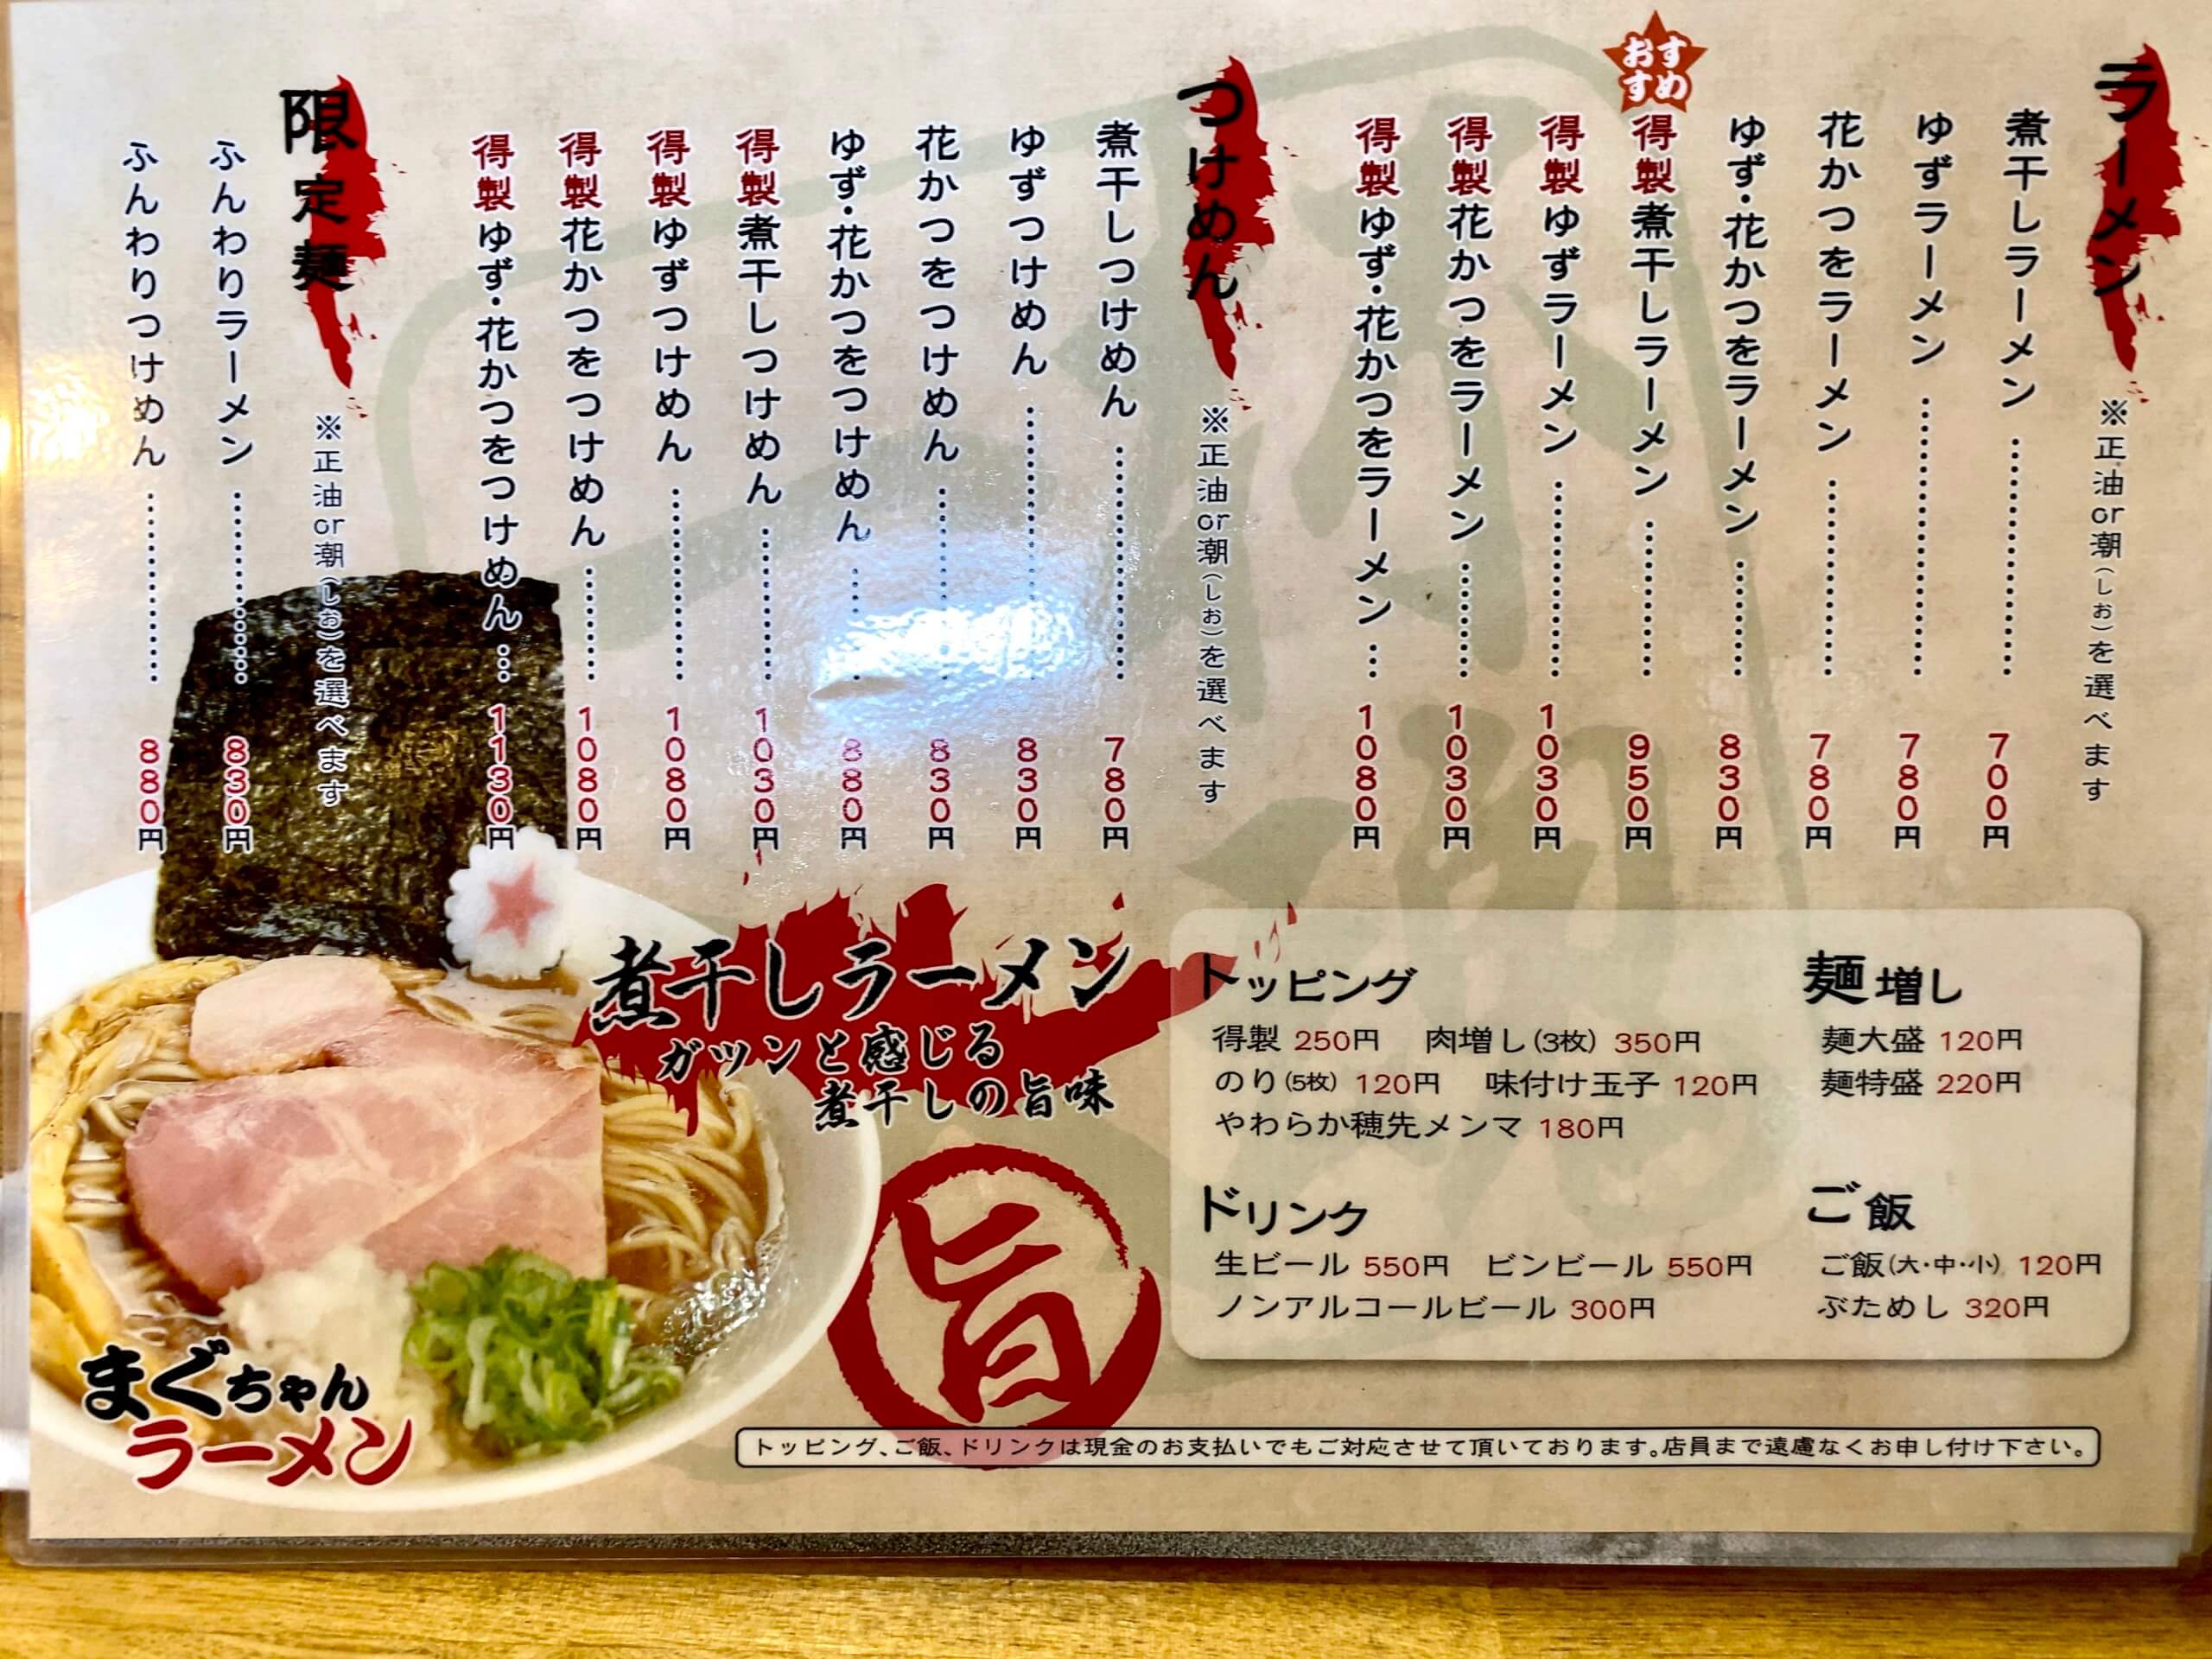 ラーメン
※正油or潮(しお)を選べます
煮干しラーメン 700円
ゆずラーメン 780円
花かつをラーメン 780円
ゆず・花かつをラーメン 830円
おすすめ
得製煮干しラーメン 950円
得製ゆずラーメン 1030円
得製花かつをラーメン 1030円
得製ゆず・花かつをラーメン 1080円
つけめん
※正油or潮(しお)を選べます
煮干しつけめん 780円
ゆずつけめん 830円
花かつをつけめん 830円
ゆず・花かつをつけめん 880円
得製煮干しつけめん 1030円
得製ゆずつけめん 1080円
得製花かつをつけめん 1080円
得製ゆず・花かつをつけめん 1130円
限定麺
※正油or潮(しお)を選べます
ふんわりラーメン 830円
ふんわりつけめん 880円
煮干しラーメン
ガツンと感じる
煮干しの旨味
旨
まぐちゃん
ラーメン
トッピング
得製 250円 肉増し(3枚) 350円
のり(5枚) 120円 味付け玉子 120円
やわらか穂先メンマ 180円
麺増し
麺大盛 120円
麺特盛 220円
ドリンク
生ビール 550円 ビンビール 550円
ノンアルコールビール 300円
ご飯
ご飯(大・中・小) 120円
ぶためし 320円
トッピング、ご飯、ドリンクは現金のお支払いでもご対応させて頂いております。店員まで遠慮なくお申し付け下さい。